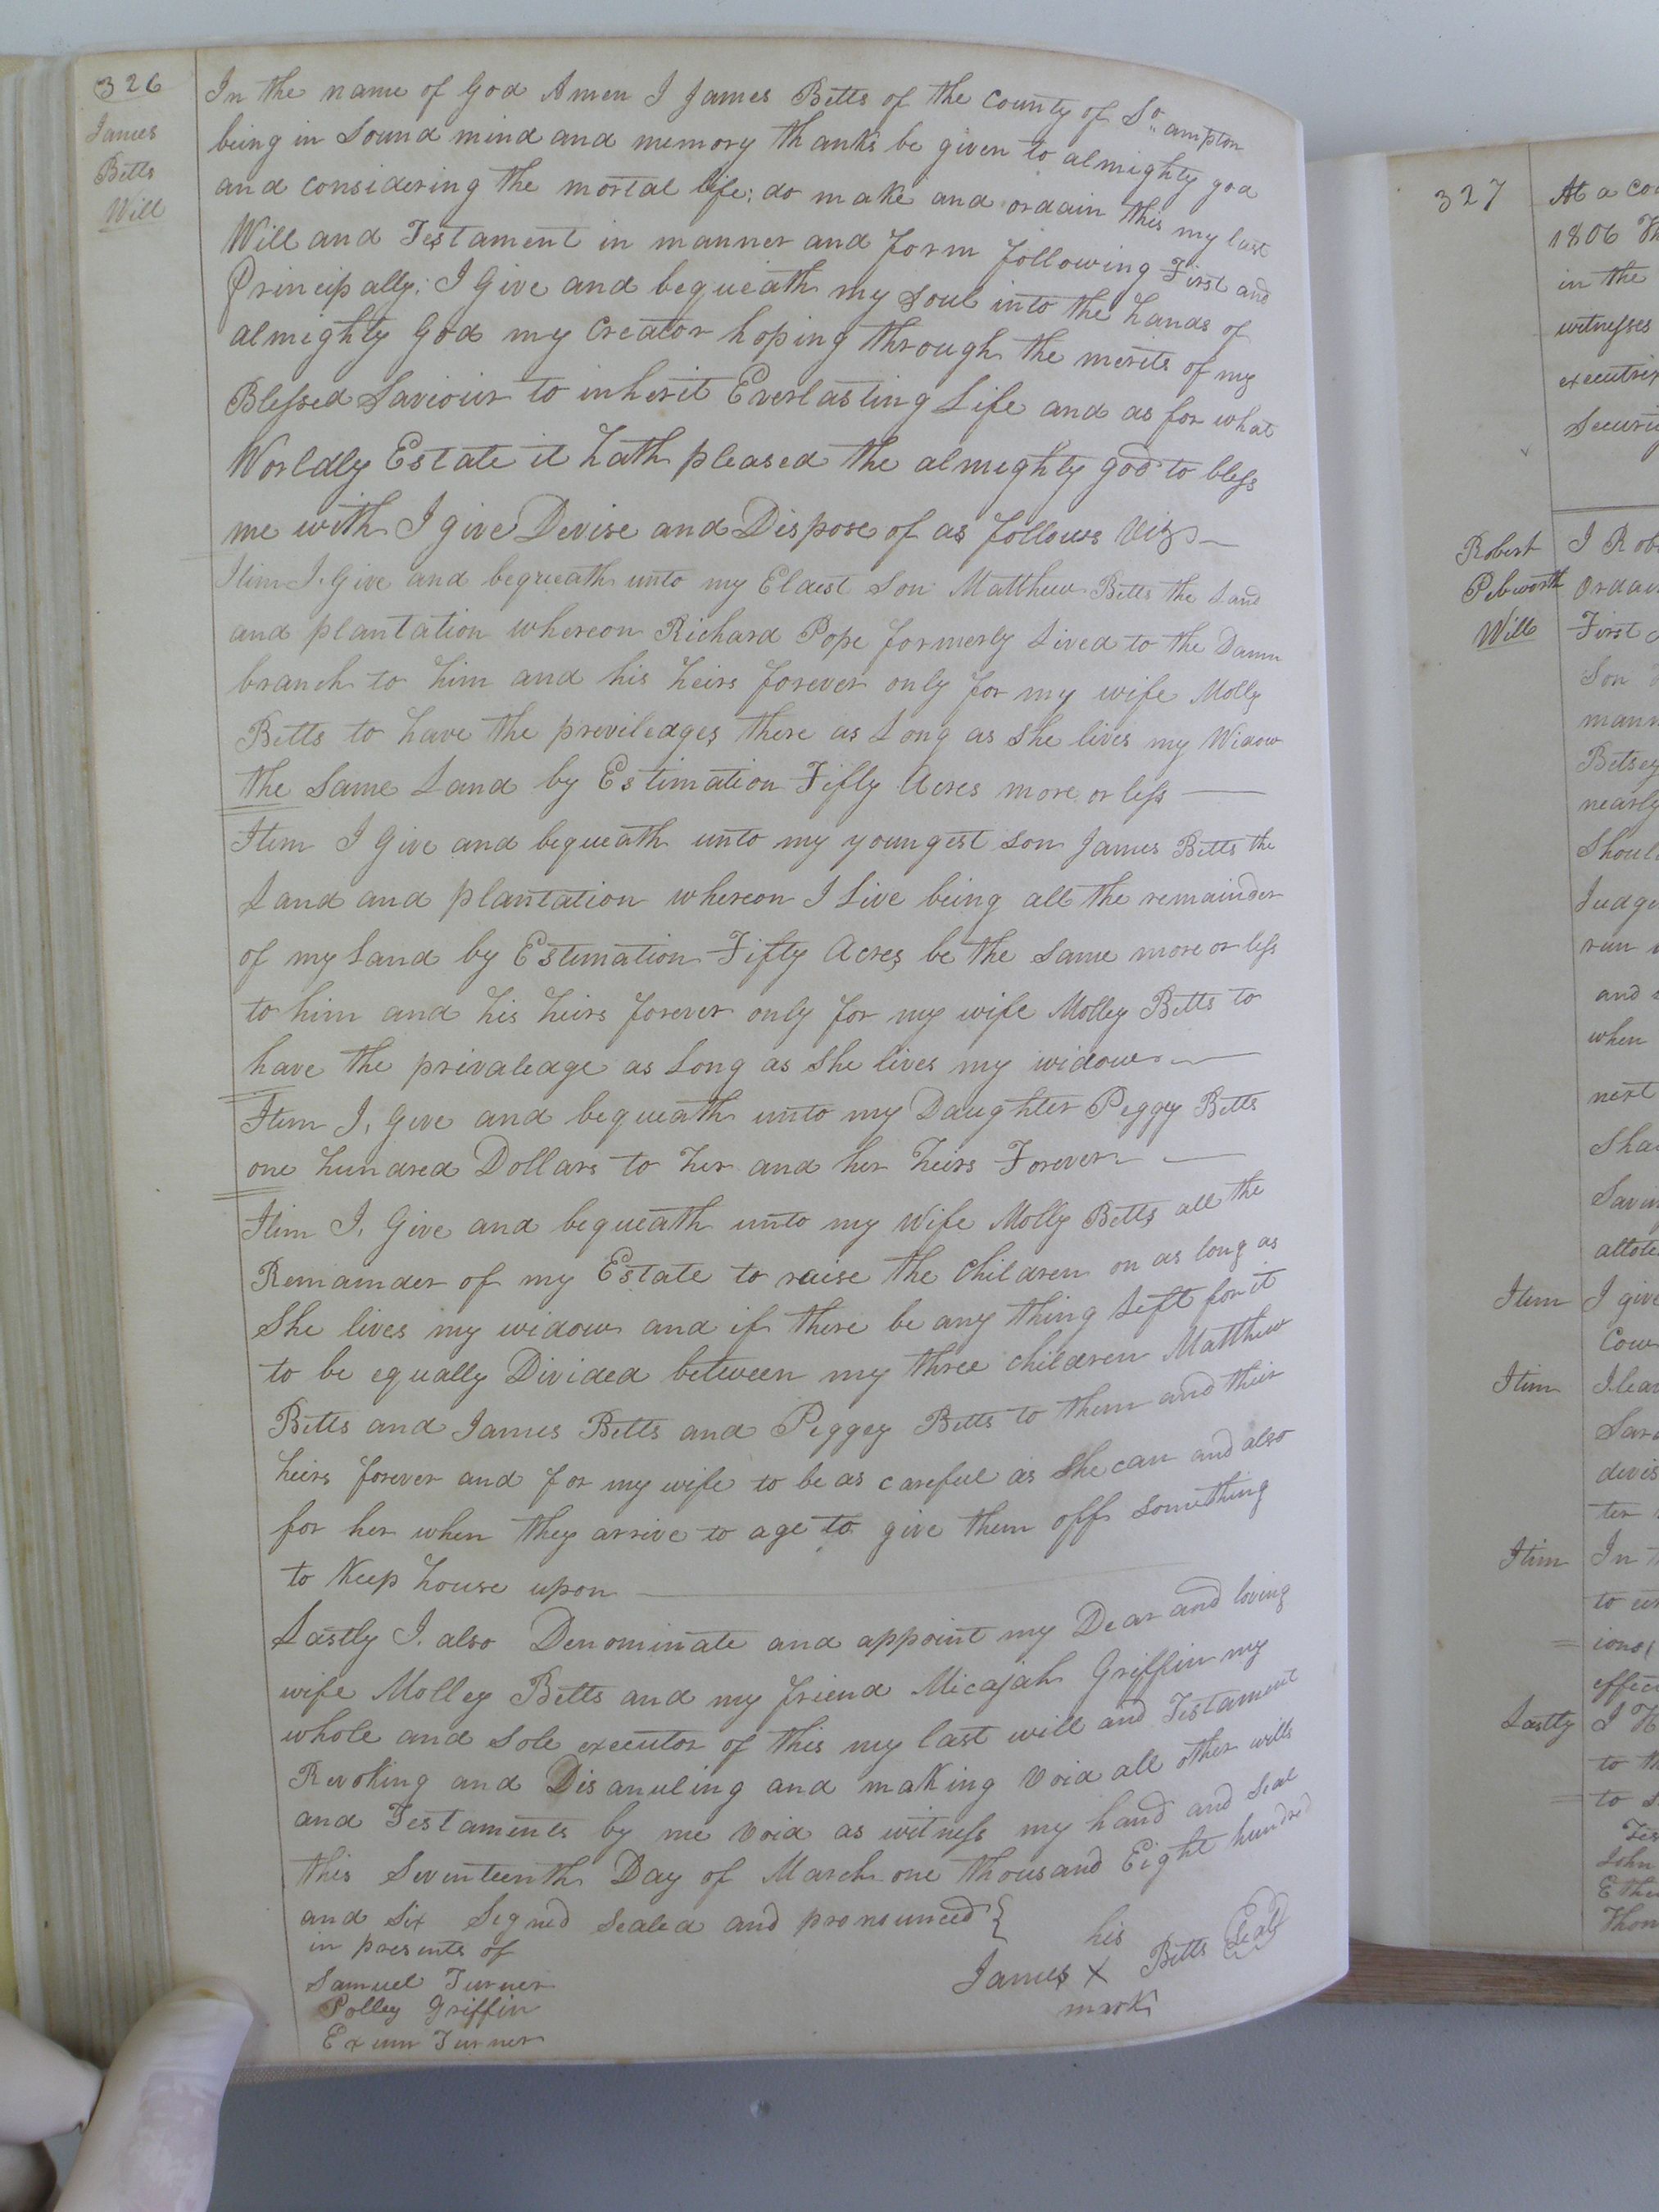 326
James
Betts
Will
In the name of God Amen I James Betts of the County of So. ampton
being in Sound mind and memory thanks be given to almighty god
and considering the mortal life: do make and ordain this my last
Will and Testament in manner and form following First and
Principally: I Give and bequeath my soul into the hands of
almighty God my Creator hoping through the merits of my
Blessed Saviour to inherit Everlasting Life and as for what
Worldly Estate it hath pleased the almighty god to bless
me with I give Devise and Dispose of as follows Viz
Item I. Give and bequeath unto my Eldest Son Matthew Betts the Land
and plantation whereon Richard Pope formerly Lived to the Damn
branch to him and his heirs forever only for my wife Molly
Betts to have the previledges there as Long as she lives my Widow
the Same Land by Estimation Fifty Acres more or less
Item I Give and bequeath unto my youngest son James Betts the
Land and plantation whereon I Live being all the remainder
of my Land by Estimation Fifty Acres be the same more or less
to him and his heirs forever only for my wife Molley Betts to
have the privaledge as Long as she lives my widow
Item I, Give and bequeath unto my Daughter Peggy Betts
one hundred Dollars to her and her heirs Forever
Item I, Give and bequeath unto my Wife Molly Betts all the
Remainder of my Estate to raise the Children on as long as
She lives my widow and if there be any thing Left for it
to be equally Divided between my three children Matthew
Betts and James Betts and Peggey Betts to them and their
heirs forever and for my wife to be as careful as she can and also
for her when they arrive to age to give them off something
to Keep house upon
Lastly I. also Denominate and appoint my Dear and loving
wife Molley Betts and my friend Micajah Griffin my
whole and Sole executor of this my last will and Testament
Revoking and Disanuling and making Void all other wills
and Testaments by me Void as witness my hand and Seal
this Seventeenth Day of March one thousand Eight hundred
and Six Signed Sealed and pronounced
in presents of
his
James X Betts Seal
mark
Samuel Turner
Polley Griffin
Exum Turner
327
At a
1806
in the
witnesses
Robert
Pebworth
Will
I
First
Son
Betsey
nearly
and
when
next
Item
I give
Item
Item
In
Lastly
I
to
to
John